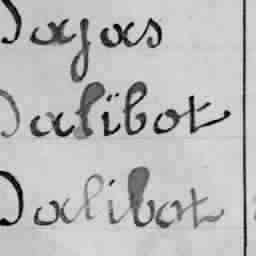 Dajas
Dalibot
Dalibot